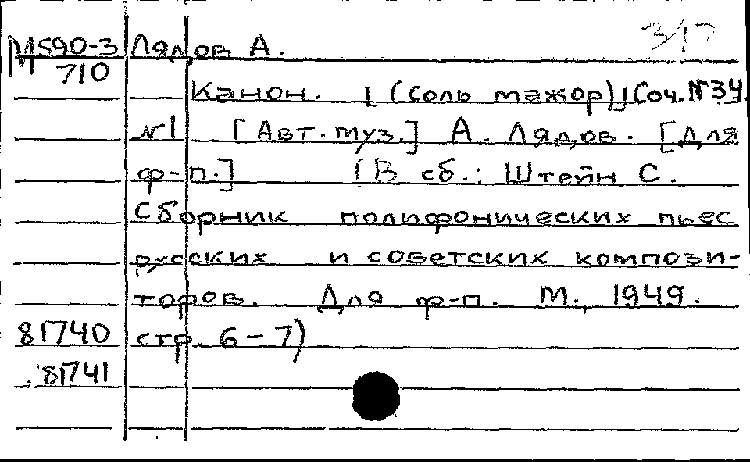 3/17
М590-3 Лядов А.
М 710
Канон. [ (соль мажор)] Соч. №34.
№1 [Авт. муз.] А. Лядов. [Для
ф-п.] (В сб.: Штейн С.
Сборник полифонических пьес
русских и советских компози-
торов. Для ф-п. М., 1949.
81740 стр. 6-7)
81741